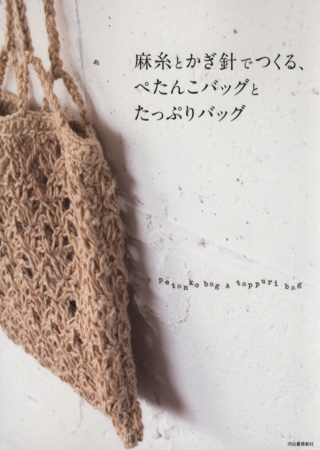 麻糸とかぎ針でつくる、
ぺたんこバッグと
たっぷりバッグ
petanko bag & tappuri bag
河出書房新社